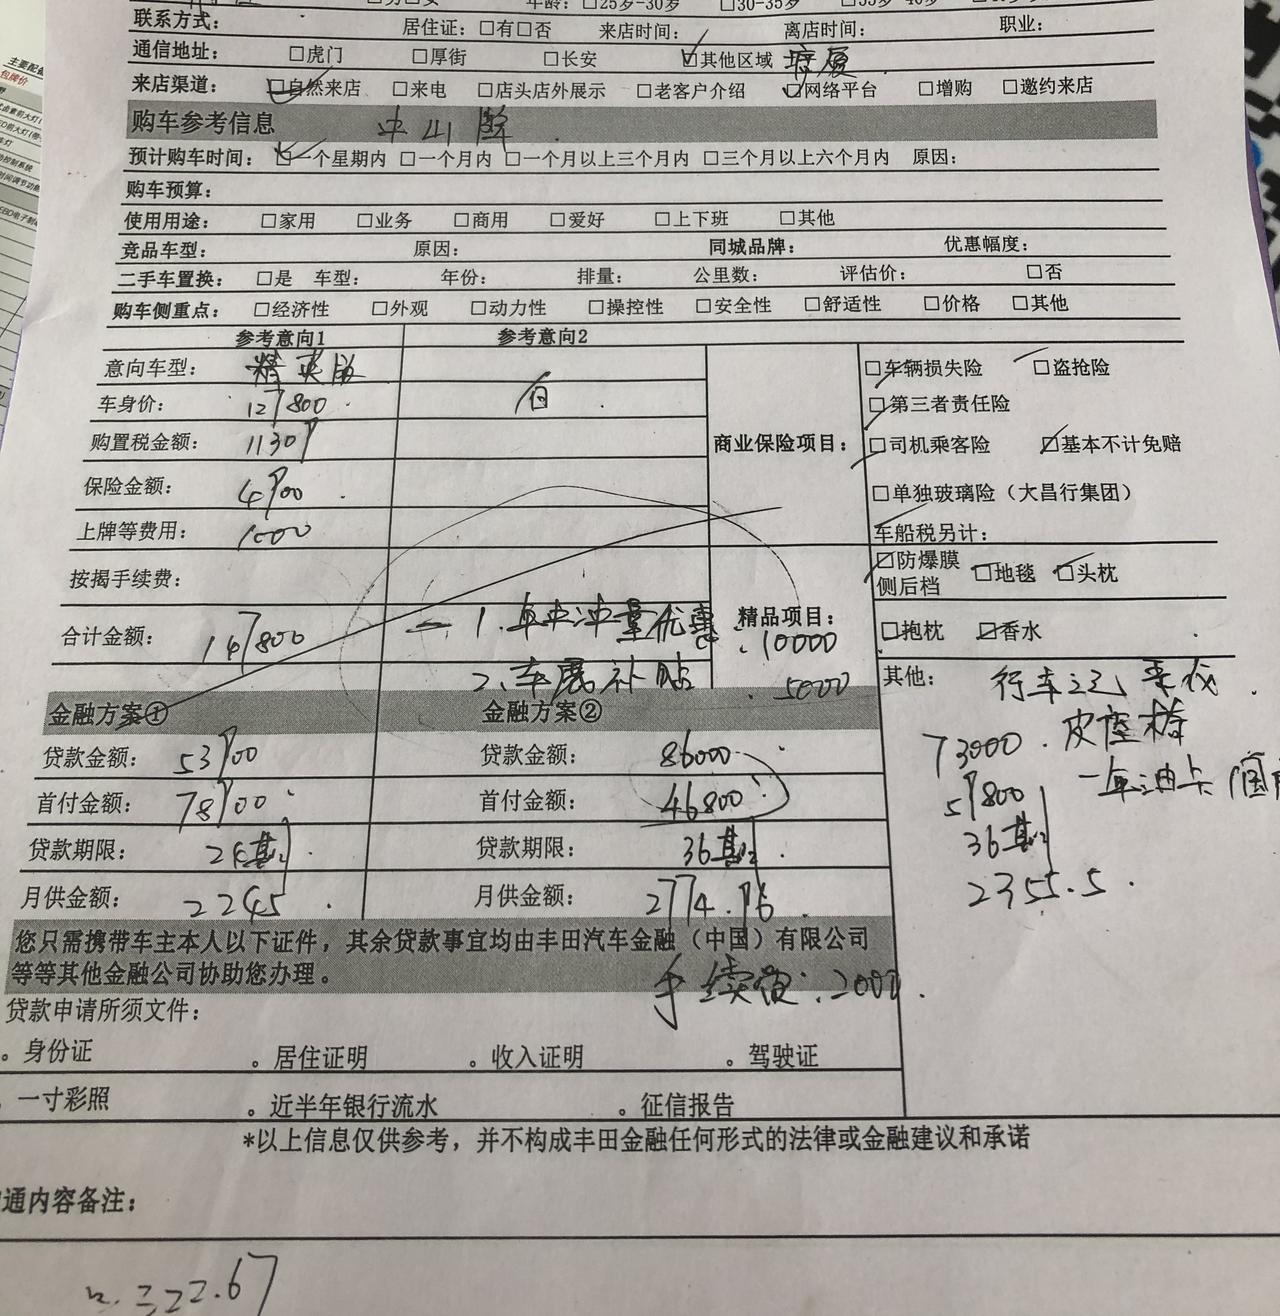 年龄: □25岁-30岁 □30-35岁
联系方式: 居住证: □有□否 来店时间: 离店时间: 职业:
通信地址: □虎门 □厚街 □长安 □其他区域 塘厦
来店渠道: □自然来店 □来电 □店头店外展示 □老客户介绍 □网络平台 □增购 □邀约来店
购车参考信息 中山牌
预计购车时间: □一个星期内 □一个月内 □一个月以上三个月内 □三个月以上六个月内 原因:
购车预算:
使用用途: □家用 □业务 □商用 □爱好 □上下班 □其他
竞品车型: 原因: 同城品牌: 优惠幅度:
二手车置换: □是 车型: 年份: 排量: 公里数: 评估价: □否
购车侧重点: □经济性 □外观 □动力性 □操控性 □安全性 □舒适性 □价格 □其他
参考意向1 参考意向2
意向车型: 精英版
车身价: 127800 白
购置税金额: 11307
保险金额: 4700
上牌等费用:
按揭手续费:
合计金额:
1. 年末冲量优惠: 10000
2、车展补贴: 5000
商业保险项目:
□车辆损失险 □盗抢险
□第三者责任险
□司机乘客险 □基本不计免赔
□单独玻璃险（大昌行集团）
车船税另计:
精品项目:
□防爆膜 □地毯 □头枕
侧后档
□抱枕 □香水
其他: 行车记录仪
皮座椅
一年油卡
73000
57800
36期
2355.5
金融方案① 金融方案②
贷款金额: 53700 贷款金额: 86000
首付金额: 78700 首付金额: 46800
贷款期限: 24期 贷款期限: 36期
月供金额: 2245 月供金额: 2774.76
您只需携带车主本人以下证件，其余贷款事宜均由丰田汽车金融（中国）有限公司
等等其他金融公司协助您办理。
手续费: 2000
贷款申请所须文件:
。身份证 。居住证明 。收入证明 。驾驶证
。一寸彩照 。近半年银行流水 。征信报告
*以上信息仅供参考，并不构成丰田金融任何形式的法律或金融建议和承诺
通内容备注: